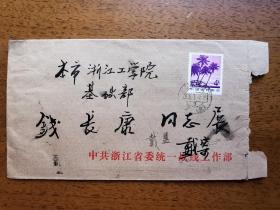 本市浙江工学院
基础部
钱长康 同志 展
戴
中共浙江省委统一战线工作部